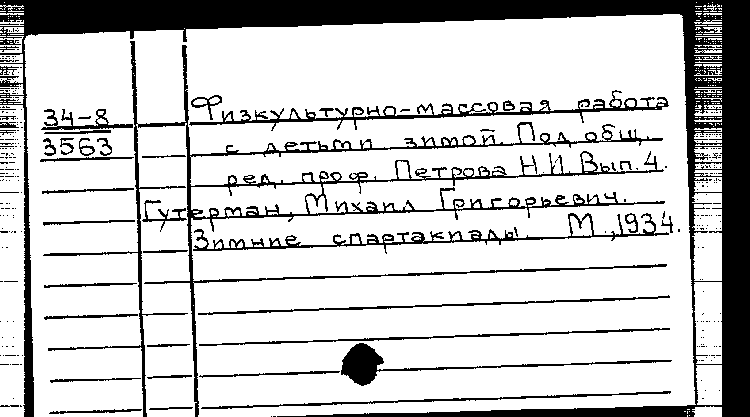 34-8
3563
Физкультурно-массовая работа
с детьми зимой. Под общ.
ред. проф. Петрова Н.И. Вып. 4.
Гутерман, Михаил Григорьевич.
Зимние спартакиады. М.,1934.